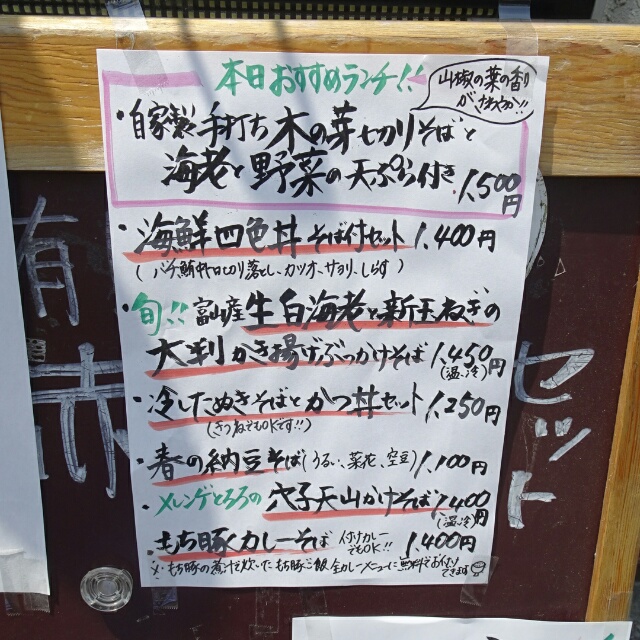 本日おすすめランチ!!
山椒の葉の香り
がさわやか!!
・自家製手打ち木の芽切りそばと
海老と野菜の天ぷら付き 1,500円
・海鮮四色丼そば付セット 1,400円
(バチ鮪 切り落とし、カツオ、サヨリ、しらす)
・旬!! 富山産生白海老と新玉ねぎの
大判かき揚げぶっかけそば 1,450円
(温、冷)
・冷したぬきそばとかつ丼セット 1,250円
(きつねでもOKです!!)
・春の納豆そば(うるい、菜花、空豆) 1,100円
・メレンゲとろろの穴子天山かけそば 1,400円
(温、冷)
・もち豚カレーそば 付けカレーでもOK!! 1,400円
※もち豚の煮汁で炊いたもち豚ご飯 全カレーメニューに無料でお付けできます
有
赤
セット